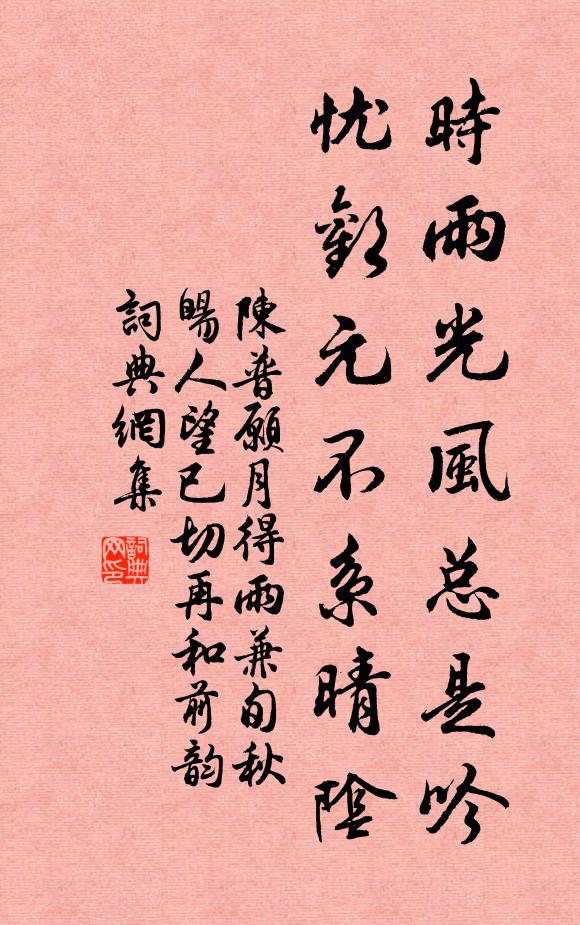 時雨光風总是吟
忧歡元不系晴陰
陳普願月得雨兼旬秋
暘人望已切再和前韵
詞典網集
詞典
网印